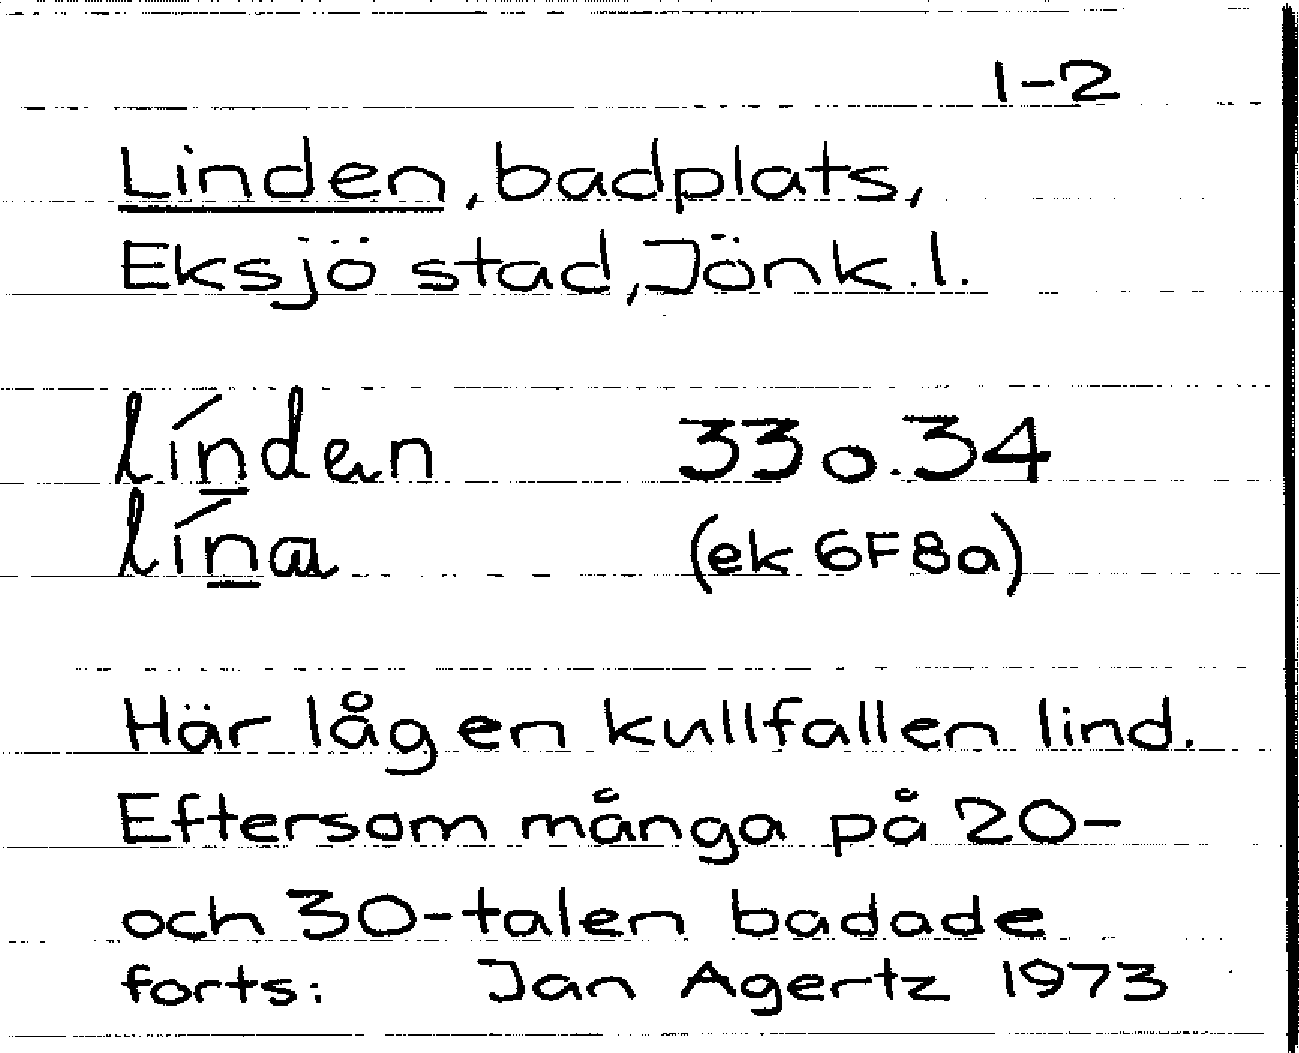 1-2
Linden, badplats,
Eksjö stad, Jönk.l.
línden 33o.34
lína (ek 6F8a)
Här låg en kullfallen lind.
Eftersom många på 20-
och 30-talen badade
forts: Jan Agertz 1973